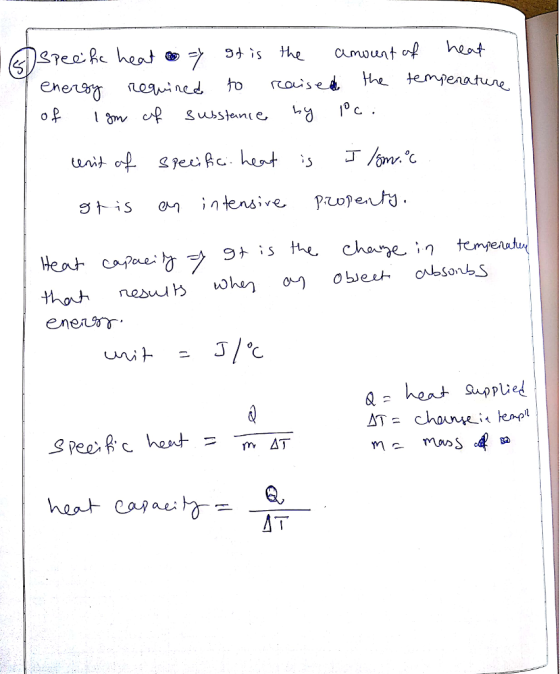 5) Specific heat => It is the amount of heat
energy required to raised the temperature
of 1 gm of substance by 1°c.
unit of specific heat is J/gm.°c
It is an intensive property.
Heat capacity => It is the change in temperature
that results when an object absorbs
energy.
unit = J/°c
Q = heat supplied
ΔT = change in temp^r
m = mass
Specific heat = Q / m ΔT
heat capacity = Q / ΔT